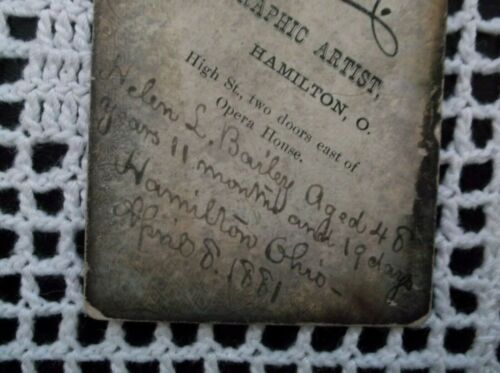 RAPHIC ARTIST,
HAMILTON, O.
High St., two doors east of
Opera House.
Helen L. Bailey Aged 48
years 11 months and 19 days
Hamilton Ohio-
April 8. 1881